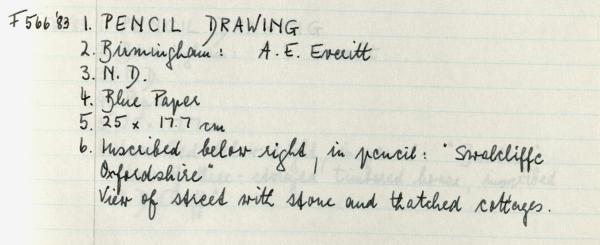 F566'83 1. PENCIL DRAWING
2. Birmingham: A. E. Everitt
3. N. D.
4. Blue Paper
5. 25 x 17.7 cm
6. Inscribed below right, in pencil: "Swalcliffe
Oxfordshire"
View of street with stone and thatched cottages.